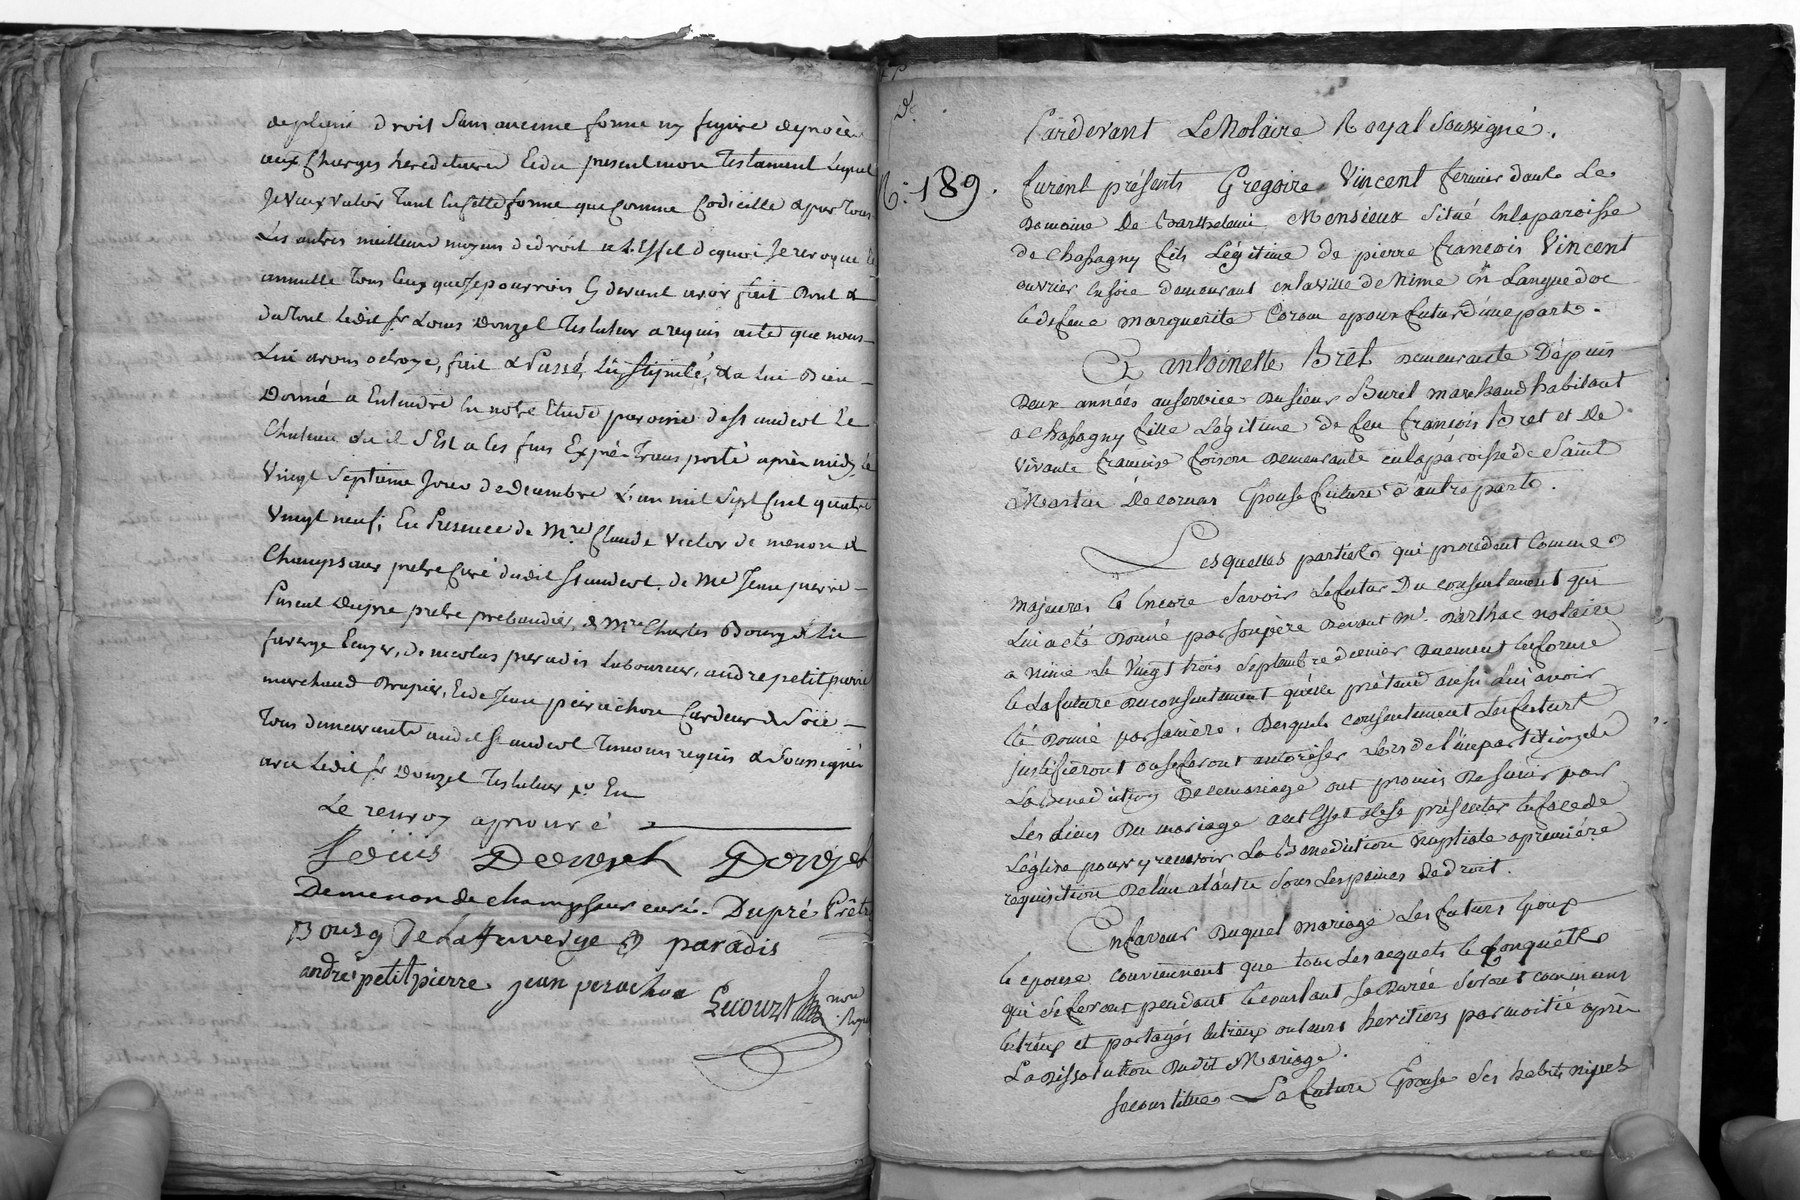 de plein droit sans aucune forme ny figure de procès
aux charges hereditaires Et du present mon Testament Lequel
Je Veux valoir Tant En cette forme que comme Codicille & par tous
Les autres meilleurs moyens de droit a L'Effet de quoi Je revoque &
annulle Tous Ceux que Je pourrois Cy devant avoir fait Dont &
du Tout Ledit Sr Louis Donzel Testateur a requis acte que nous
Lui avons octroyé, fait & Passé, Lû, Stipulé, & a lui Bien
Donné a Entendre En notre Etude paroisse de St andeol Le
Chateau où il s'Est a les fins Exprès Transporté après midy le
Vingt Septieme Jour de decembre L'an mil Sept Cent quatre
Vingt neuf, En Presence de Mre Claude Victor de menon de
Champsaur pretre Curé dudit St andeol de Me Jean pierre
Dupré pretre prebandier, & Mre Charles Bourg de La
faverge de nicolas paradis Laboureur, andre petit pierre
marchand Drapier, Et de Jean peirachon Cardeur de Soie
Tous demeurants audit St andeol Temoins requis & Soussignés
avec Ledit Sr Donzel Testateur
Le renvoy aprouvé
Louis Donzel Donzel
Demenon de champsaur curé. Dupré Prêtre
Bourg De La faverge paradis
andré petitpierre jean perachon
not. Royal
N.o 189.
Pardevant Le Notaire Royal Soussigné.
furent présents Gregoire Vincent fermier dans Le
Domaine De Barthelemi Monsieux Situé En la paroisse
de Chassagny fils Légitime de pierre françois Vincent
ouvrier En soie demeurant en la ville de Nime En Languedoc
& de feue marguerite Corom epoux futur d'une part.
Et antoinette Bret Demeurante Dépuis
Deux années au service du sieur Buret marchand habitant
a Chassagny fille Légitime de feu françois Bret et De
Vivante francoise foison Demeurante en la paroisse de Saint
Martin De cornas Epouse future d'autre part.
Lesquelles parties qui procedent Comme
majeures & Encore Savoir Le futur Du consentement qui
Lui a été Donné par son père Devant Me. Barthac notaire
a Nime Le Vingt trois Septembre dernier Duement En forme
& La future du consentement qu'elle prétend aussi Lui avoir
été Donné par sa mère. Desquels consentement Les futurs
justifieront ou se feront autoriser Lors de l'impartition de
La Benediction De ce mariage ont promis De s'unir par
Les Liens Du mariage a cet Effet de se présenter En face de
L'église pour y recevoir La Benediction Nuptiale a premiére
requisition De l'un a l'autre Sous Les peines De droit.
En faveur Duquel mariage Les futurs Epoux
& epouse conviennent que tous Les acquets & Conquêts
qui Se feront pendant & constant Sa Durée Seront communs
Entr'eux et partagés Entr'eux ou Leurs heritiers par moitié après
La Dissolution Dudit Mariage.
Se constitue La future Epouse Ses habits nipes